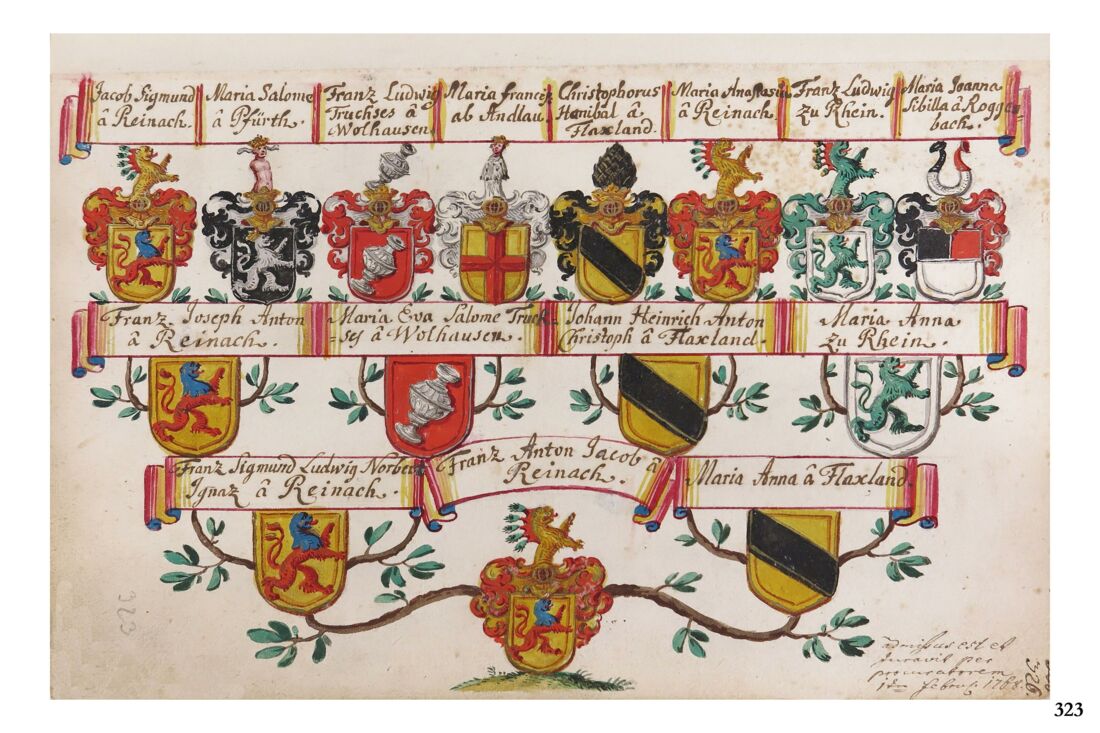 Jacob Sigmund
â Reinach.
Maria Salome
â Pfürth.
Franz Ludwig
Truchses â
Wolhausen
Maria Francisc
ab Andlau.
Christophorus
Hanibal â
Flaxland.
Maria Anastasia
â Reinach.
Franz Ludwig
zu Rhein.
Maria Ioanna
Sibilla â Roggen
bach.
Franz Joseph Anton
â Reinach.
Maria Eva Salome Truck
=ses â Wolhausen.
Johann Heinrich Anton
Christoph â Flaxland.
Maria Anna
zu Rhein.
Franz Sigmund Ludwig Norbert
Ignaz â Reinach.
Franz Anton Jacob â
Reinach.
Maria Anna â Flaxland.
admissus est et
Juravit per
procuratorem
febru: 1768.
323
326.
323